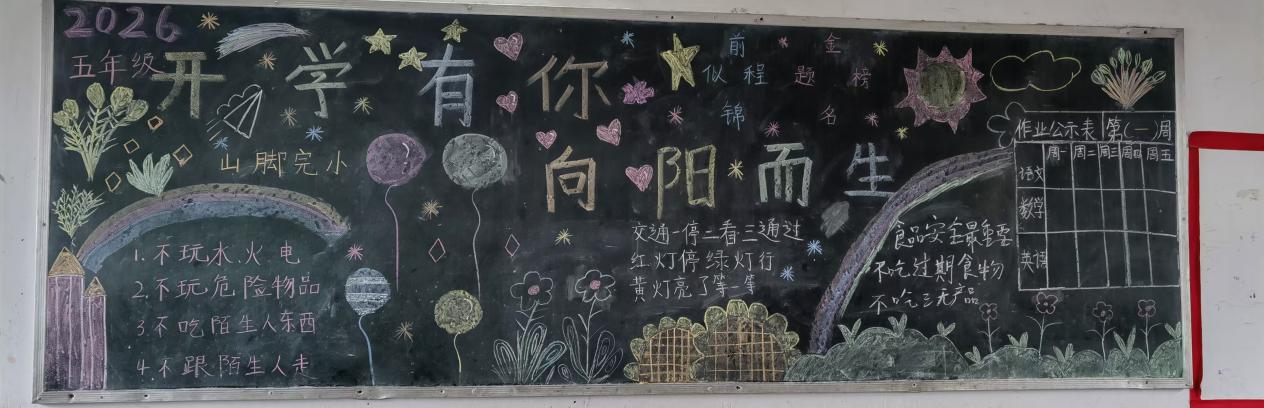 2026
五年级
开学有你
向阳而生
前程似锦
金榜题名
山脚完小
1.不玩水.火电
2.不玩危险物品
3不吃陌生人东西
4.不跟陌生人走
交通一停二看三通过
红灯停绿灯行
黄灯亮了等一等
食品安全最重要
不吃过期食物
不吃三无产品
作业公示表 第(一)周
周一 周二 周三 周四 周五
语文
数学
英语